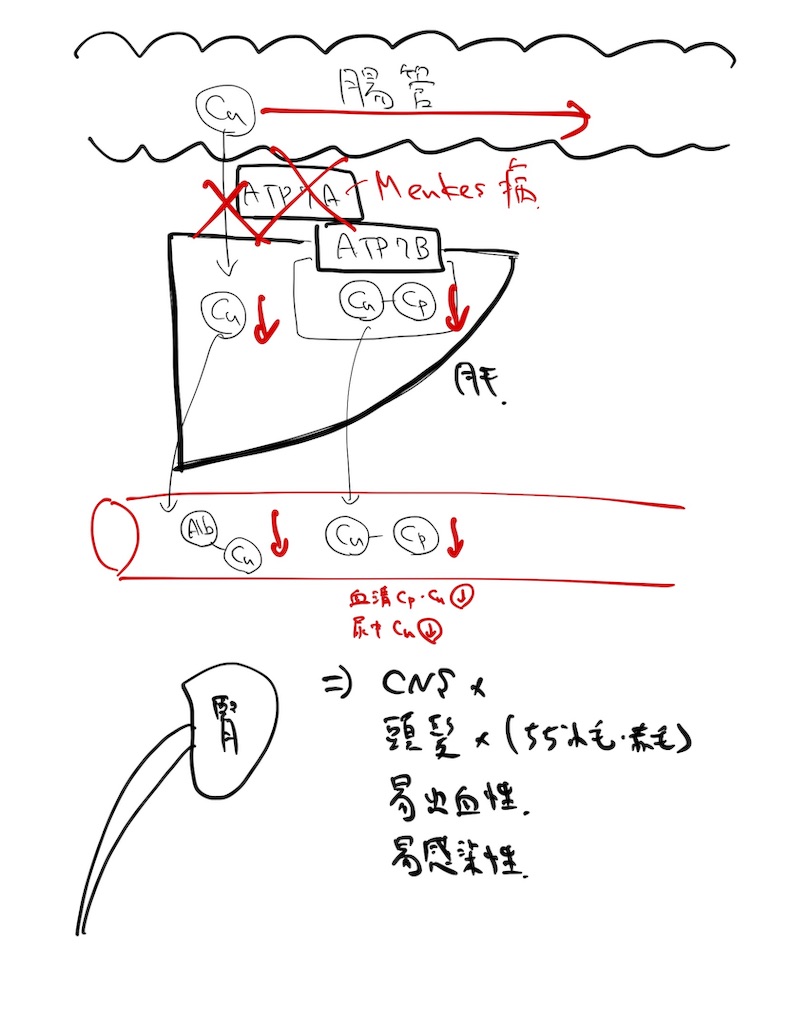 腸管
Cu
ATP7A
Menkes病
ATP7B
Cu
Cu
Cp
肝
Alb
Cu
Cu
Cp
血清 Cp・Cu↓
尿中 Cu↓
腎
⇒ CNS ×
頭髪 × (ちぢれ毛・赤毛)
易出血性
易感染性